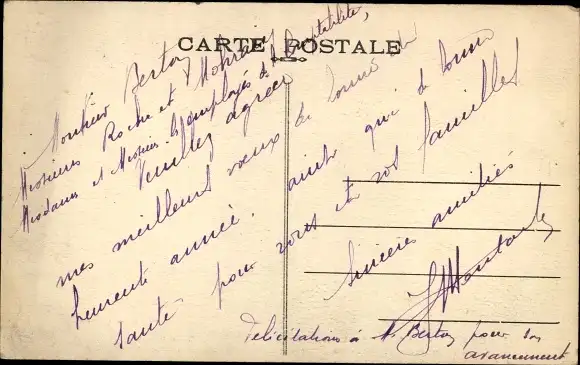 CARTE POSTALE
Monsieur Berton
Messieurs Roche et
Mesdames et Messieurs les employés de la Comptabilité,
Veuillez agréer
mes meilleurs vœux de bonne et
heureuse année. ainsi que de bonne
santé pour vous et vos familles
Sincères amitiés
Félicitations à M. Berton pour son
avancement